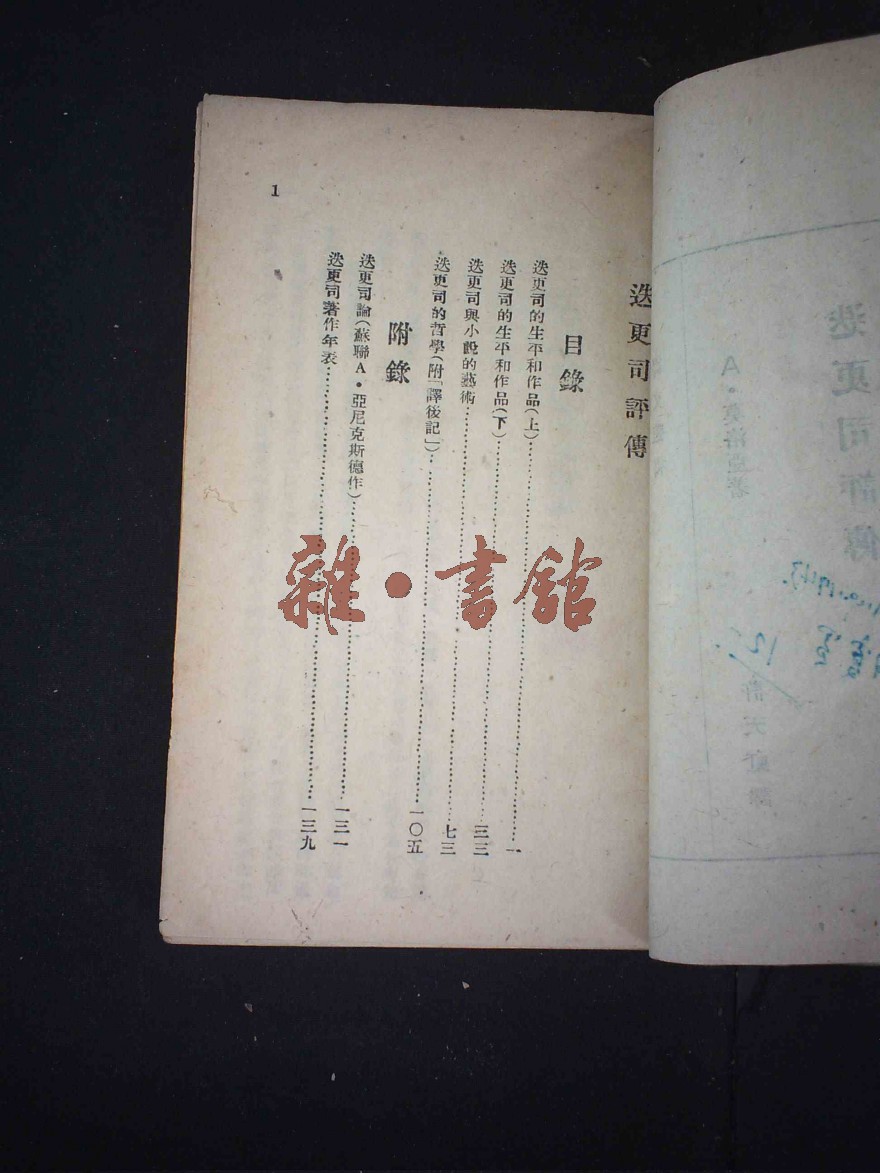 迭更司評傳
目錄
迭更司的生平和作品(上)……一
迭更司的生平和作品(下)……三三
迭更司與小說的藝術……七三
迭更司的哲學(附「譯後記」)……一〇五
附錄
迭更司論(蘇聯A·亞尼克斯德作)……一三一
迭更司著作年表……一三九
1
雜·書館